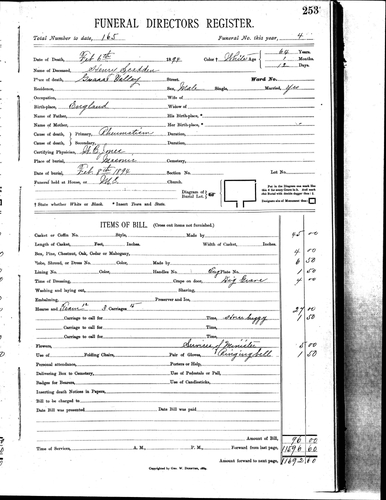 253
FUNERAL DIRECTORS REGISTER.
Total Number to date, 165 Funeral No. this year, 4
Date of Death, Feb 6th 1890 Color † White Age 64 Years
Name of Deceased, Henry 1 Months
Place of death, Valley Street, Ward No. 12 Days
Residence, Sex, Male Single, Married, Yes
Occupation, Wife of
Birth-place, England Widow of
Name of Father, His Birth-place,
Name of Mother, Her Birth-place,
Cause of death, Primary, Rheumatism Duration,
Cause of death, Secondary, Duration,
Certifying Physician, Residence,
Place of burial, Masonic Cemetery,
Date of burial, Feb 8th 1890 Section No. Lot No.
Funeral held at House, or M. E. Church. Diagram of Lot or Vault
† State whether White or Black. * Insert Town and State.
ITEMS OF BILL. (Cross out items not furnished.)
Casket or Coffin No. Style, Made by 45 00
Length of Casket, Feet, Inches. Width of Casket, Inches.
Box, Pine, Chestnut, Oak, Cedar or Mahogany, 4 00
Robe, Shroud, or Dress No. Color, Made by 6 50
Lining No. Color, Handles No. 1 50
Time of Dressing, Crape on door, Dig Grave 4 00
Washing and laying out, Shaving,
Embalming, Preserver and Ice,
Hearse and 3 Carriages 15 27 00
Carriage to call for Time, Buggy 1 50
Carriage to call for Time,
Carriage to call for Time,
Flowers, Services of Minister 5 00
Use of Folding Chairs, Pair of Gloves, Ringing bell 1 50
Personal attendance, Porters or Help,
Delivering Box to Cemetery, Use of Pedestals or Pall,
Badges for Bearers, Use of Candlesticks,
Inserting death Notices in Papers,
Bill to be charged to
Date Bill was presented Date Bill was paid
Amount of Bill, 96 00
Time of Services, A. M., P. M., Forward from last page, 11596 60
Amount forward to next page, 11692 60